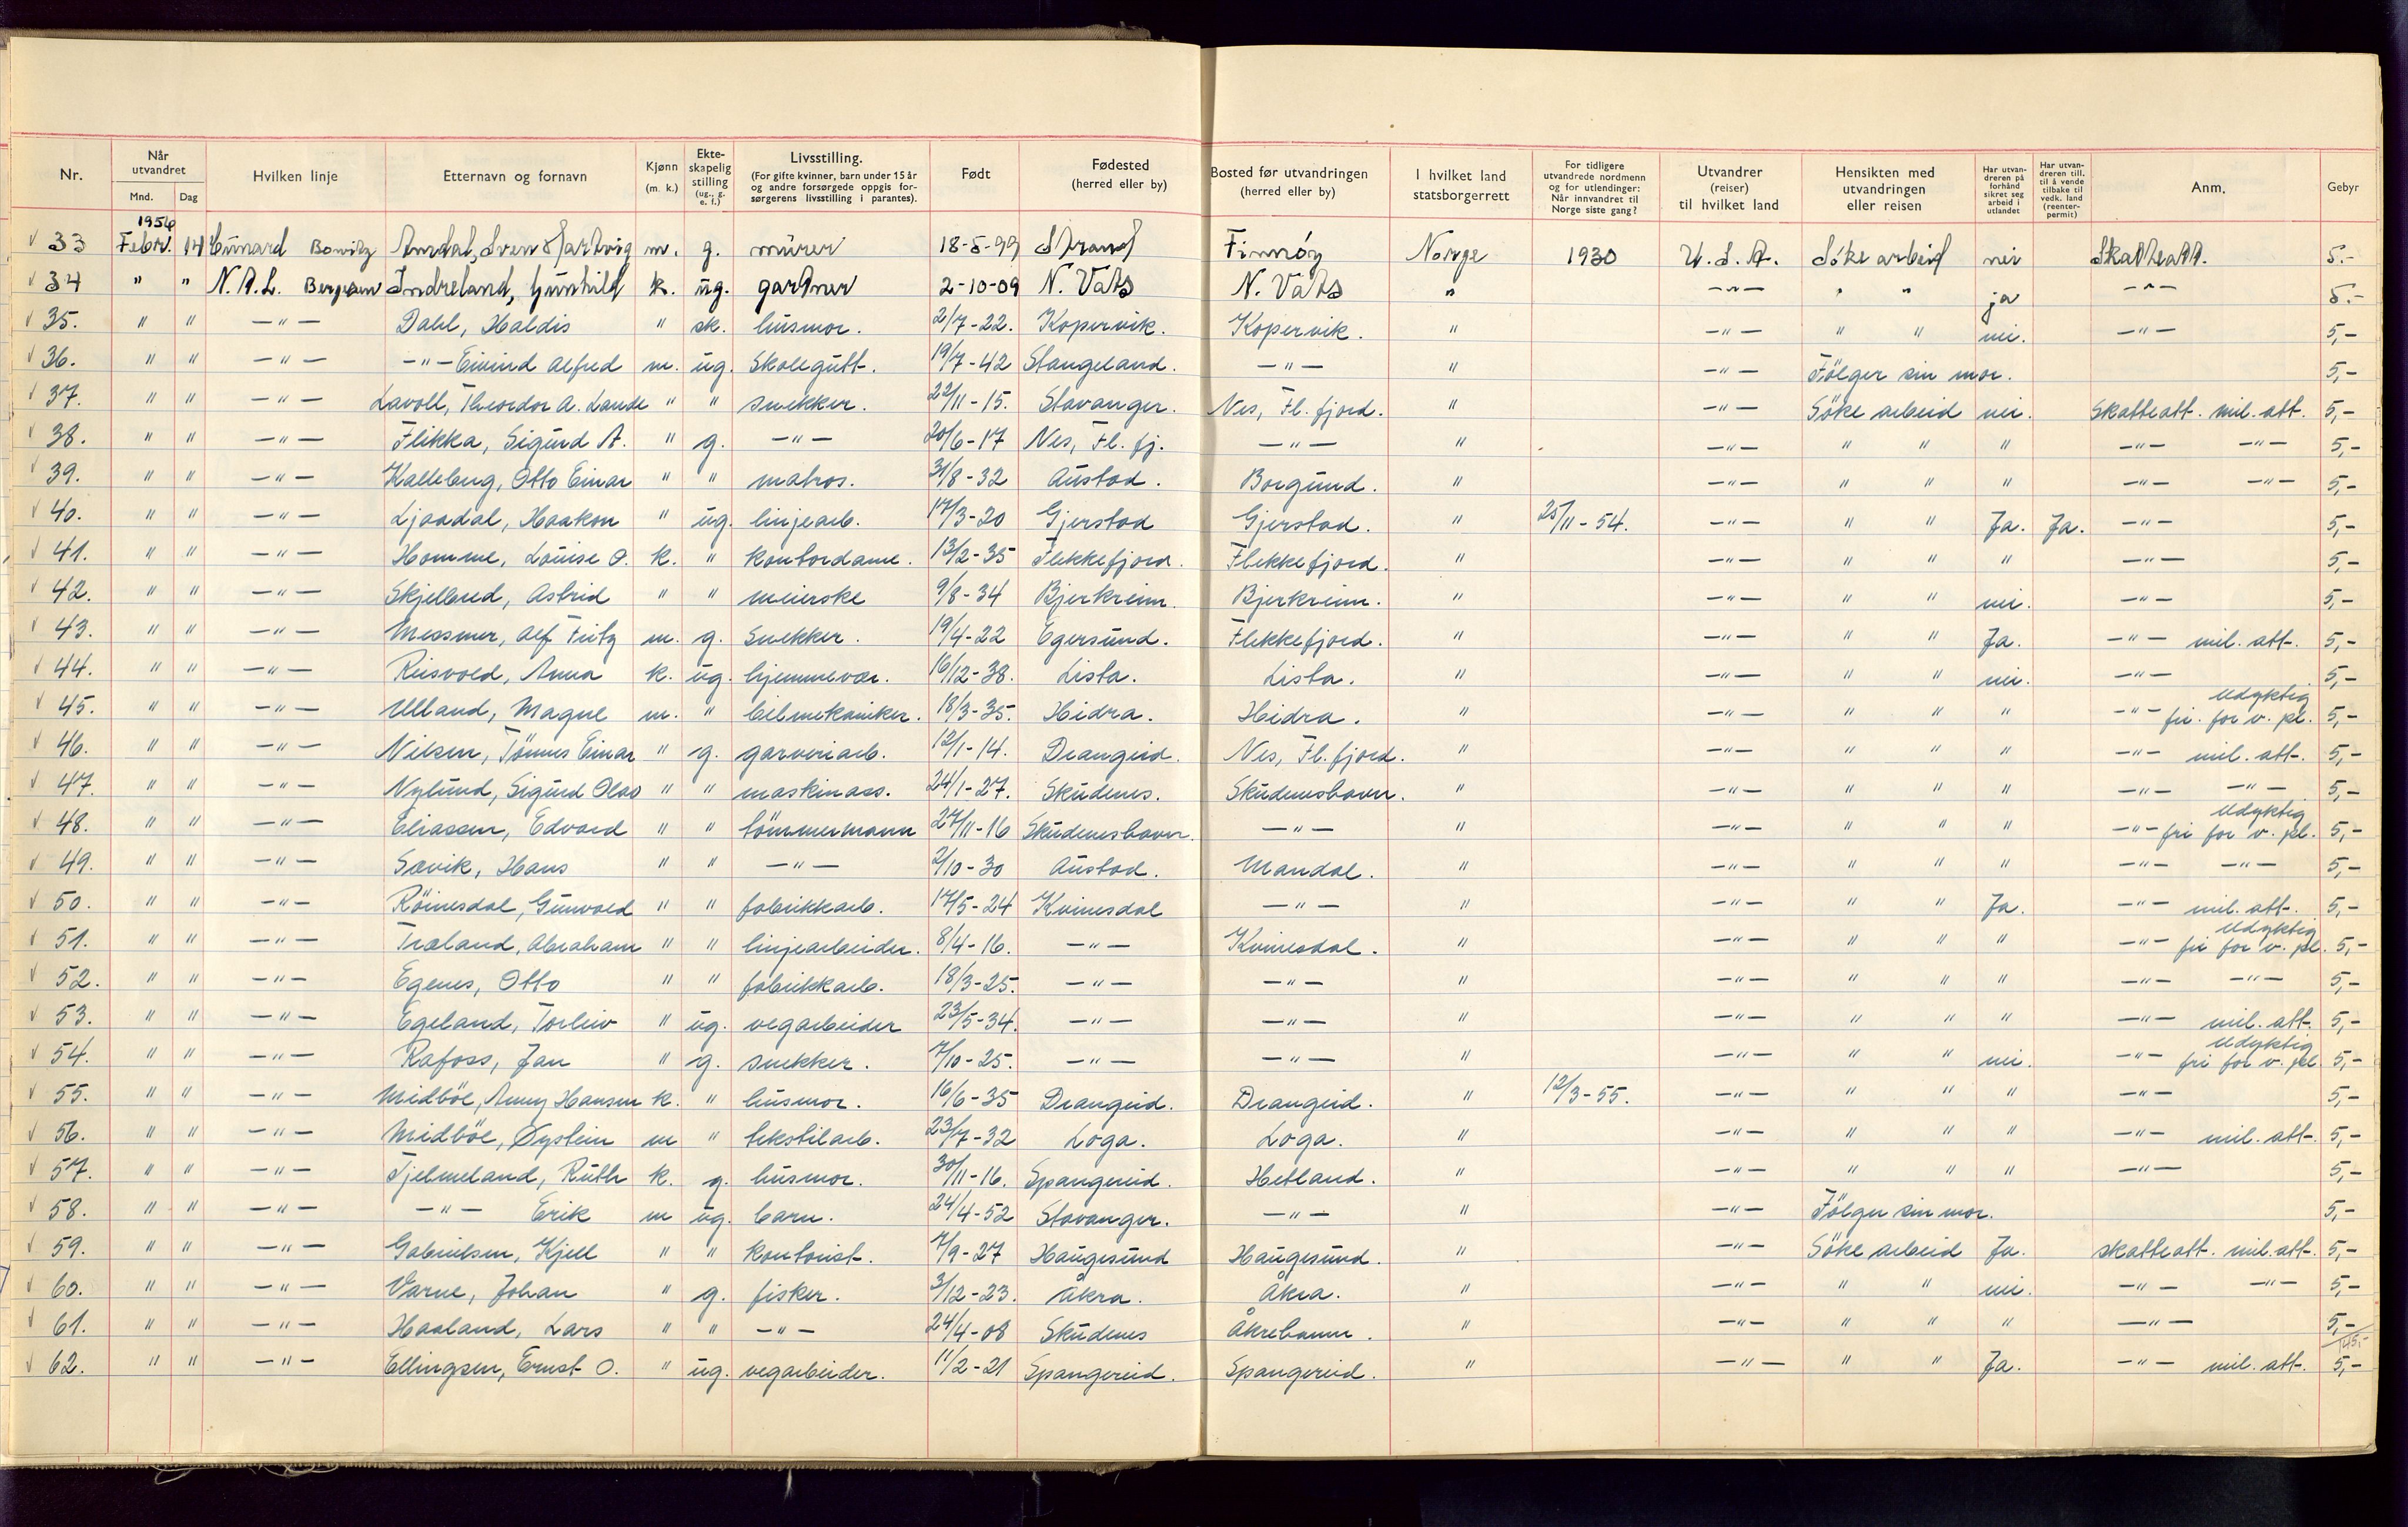 Nr. | Når utvandret Mnd. Dag | Hvilken linje | Etternavn og fornavn | Kjønn (m. k.) | Ekteskapelig stilling (ug., g. e. f.) | Livsstilling. (For gifte kvinner, barn under 15 år og andre forsørgede oppgis forsørgerens livsstilling i parantes). | Født | Fødested (herred eller by) | Bosted før utvandringen (herred eller by) | I hvilket land statsborgerrett | For tidligere utvandrede nordmenn og for utlendinger: Når innvandret til Norge siste gang? | Utvandrer (reiser) til hvilket land | Hensikten med utvandringen eller reisen | Har utvandreren på forhånd sikret seg arbeid i utlandet | Har utvandreren till. til å vende tilbake til vedk. land (reenterpermit) | Anm. | Gebyr
1956
33 Febr. 14 Cunard Amdal, Sven Hartvig m. g. mürer 18-5-99 Strand Finnøy Norge 1930 U.S.A. Søke arbeid nei Skatteatt. 5.-
34 " " N.A.L. Bergen Indreland, Gunhild k. ug. gartner 2-10-09 N. Vats N. Vats " -"- " " ja -"- 5.-
35. " " -"- Dahl, Haldis " sk. husmor. 2/7-22. Kopervik. Kopervik. " -"- " " nei. -"- 5,-
36. " " -"- -"- Eivind Alfred m. ug. Skolegutt. 19/7-42 Stangeland. -"- " -"- Følger sin mor. 5,-
37. " " -"- Lavoll, Theordor A. Lande " " snekker. 22/11-15. Stavanger. Nes, Fl. fjord. " -"- Söke arbeid nei. Skatteatt. mil. att. 5,-
38. " " -"- Flikka, Sigurd A. " g. -"- 20/6-17 Nes, Fl. fj. -"- " -"- " " " -"- -"- 5,-
39. " " -"- Kalleberg, Otto Einar " " matros. 31/8-32 Austad. Borgund. " -"- " " " -"- -"- 5,-
40. " " -"- Ljosdal, Haakon " ug. linjearb. 17/3-20 Gjerstad Gjerstad. " 25/11-54. -"- " " Ja. Ja. -"- 5,-
41. " " -"- Homme, Louise O. k. " kontordame. 13/2-35 Flekkefjord. Flekkefjord. " -"- " " " -"- 5,-
42. " " -"- Skjelbred, Astrid " " meierske 9/8-34 Bjerkreim. Bjerkreim. " -"- " " nei. -"- 5,-
43. " " -"- Messmer, Alf Fritz m. g. Snekker. 19/4-22 Egersund. Flekkefjord. " -"- " " Ja. -"- mil. att. 5,-
44. " " -"- Risvold, Anna k. ug. hjemmevær. 16/12-38. Lista. Lista. " -"- " " nei. -"- 5,-
45. " " -"- Ulland, Magne m. " bilmekaniker. 18/3-35. Hidra. Hidra. " -"- " " " -"- Udyktig fri. for v. pl. 5,-
46. " " -"- Nilsen, Tönnes Einar " g. garveriarb. 12/1-14. Drangeid. Nes, Fl. fjord. " -"- " " " -"- mil. att. 5,-
47. " " -"- Nylund, Sigurd Olav " " maskinass. 24/1-27. Skudenes. Skudeneshavn. " -"- " " " -"- -"- 5,-
48. " " -"- Eliassen, Edvard " " tömmermann 27/11-16 Skudeneshavn. -"- " -"- " " " -"- Udyktig fri for v. pl. 5,-
49. " " -"- Sævik, Hans " " -"- 2/10-30 Austad. Mandal. " -"- " " " -"- -"- 5,-
50. " " -"- Röinesdal, Gunvald " " fabrikkarb. 17/5-24 Kvinesdal -"- " -"- " " Ja. -"- mil. att. 5,-
51. " " -"- Træland, Abraham " " linjearbeider. 8/4-16. -"- Kvinesdal. " -"- " " " -"- Udyktig fri for v. pl. 5,-
52. " " -"- Egenes, Otto " " fabrikkarb. 18/3-25. -"- -"- " -"- " " " -"- -"- 5,-
53. " " -"- Egeland, Torleiv " ug. vegarbeider 23/5-34. -"- -"- " -"- " " " -"- mil. att. 5,-
54. " " -"- Rafoss, Jan " g. snekker. 7/10-25. -"- -"- " -"- " " nei. -"- Udyktig fri for v. pl. 5,-
55. " " -"- Midböe, Anny Hansen k. " husmor. 16/6-35 Drangeid. Drangeid. " 12/3-55. -"- " " " -"- 5,-
56. " " -"- Midböe, Öystein m " tekstilarb. 23/7-32 Loga. Loga. " -"- " " " -"- mil. att. 5,-
57. " " -"- Tjelmeland, Ruth k. g. husmor. 30/11-16. Spangereid. Hetland. " -"- " " " -"- 5,-
58. " " -"- -"- Erik m ug. barn. 24/4-52 Stavanger. -"- " -"- Fölger sin mor. 5,-
59. " " -"- Gabrielsen, Kjell " " kontorist. 7/9-27 Haugesund Haugesund. " -"- Söke arbeid Ja. skatteatt. mil. att. 5,-
60. " " -"- Varne, Johan " g. fisker. 3/12-23. Åkra. Åkra. " -"- " " nei. -"- -"- 5,-
61. " " -"- Haaland, Lars " " -"- 24/4-08 Skudenes Åkrehamn. " -"- " " " -"- 5,-
62. " " -"- Ellingsen, Ernst O. " ug. vegarbeider. 11/2-21 Spangereid. Spangereid. " -"- " " Ja. -"- mil. att. 5,-